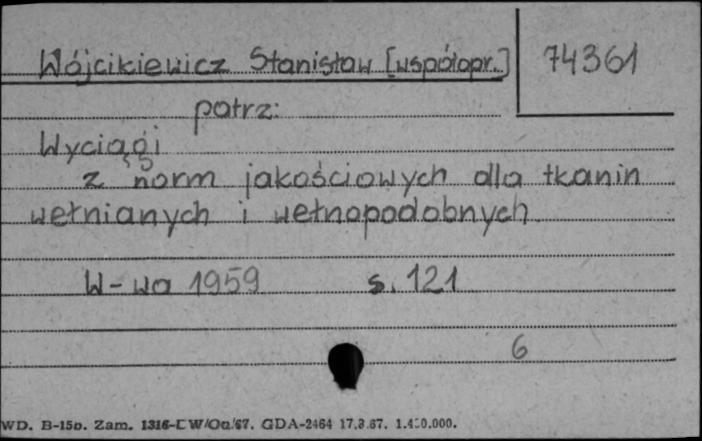 Wójcikiewicz Stanisław [współopr.] 74361
patrz:
Wyciągi
z norm jakościowych dla tkanin
wełnianych i wełnopodobnych
W-wa 1959 s. 121
6
WD. B-15b. Zam. 1316-C W/Oa/67. GDA-2464 17.3.67.